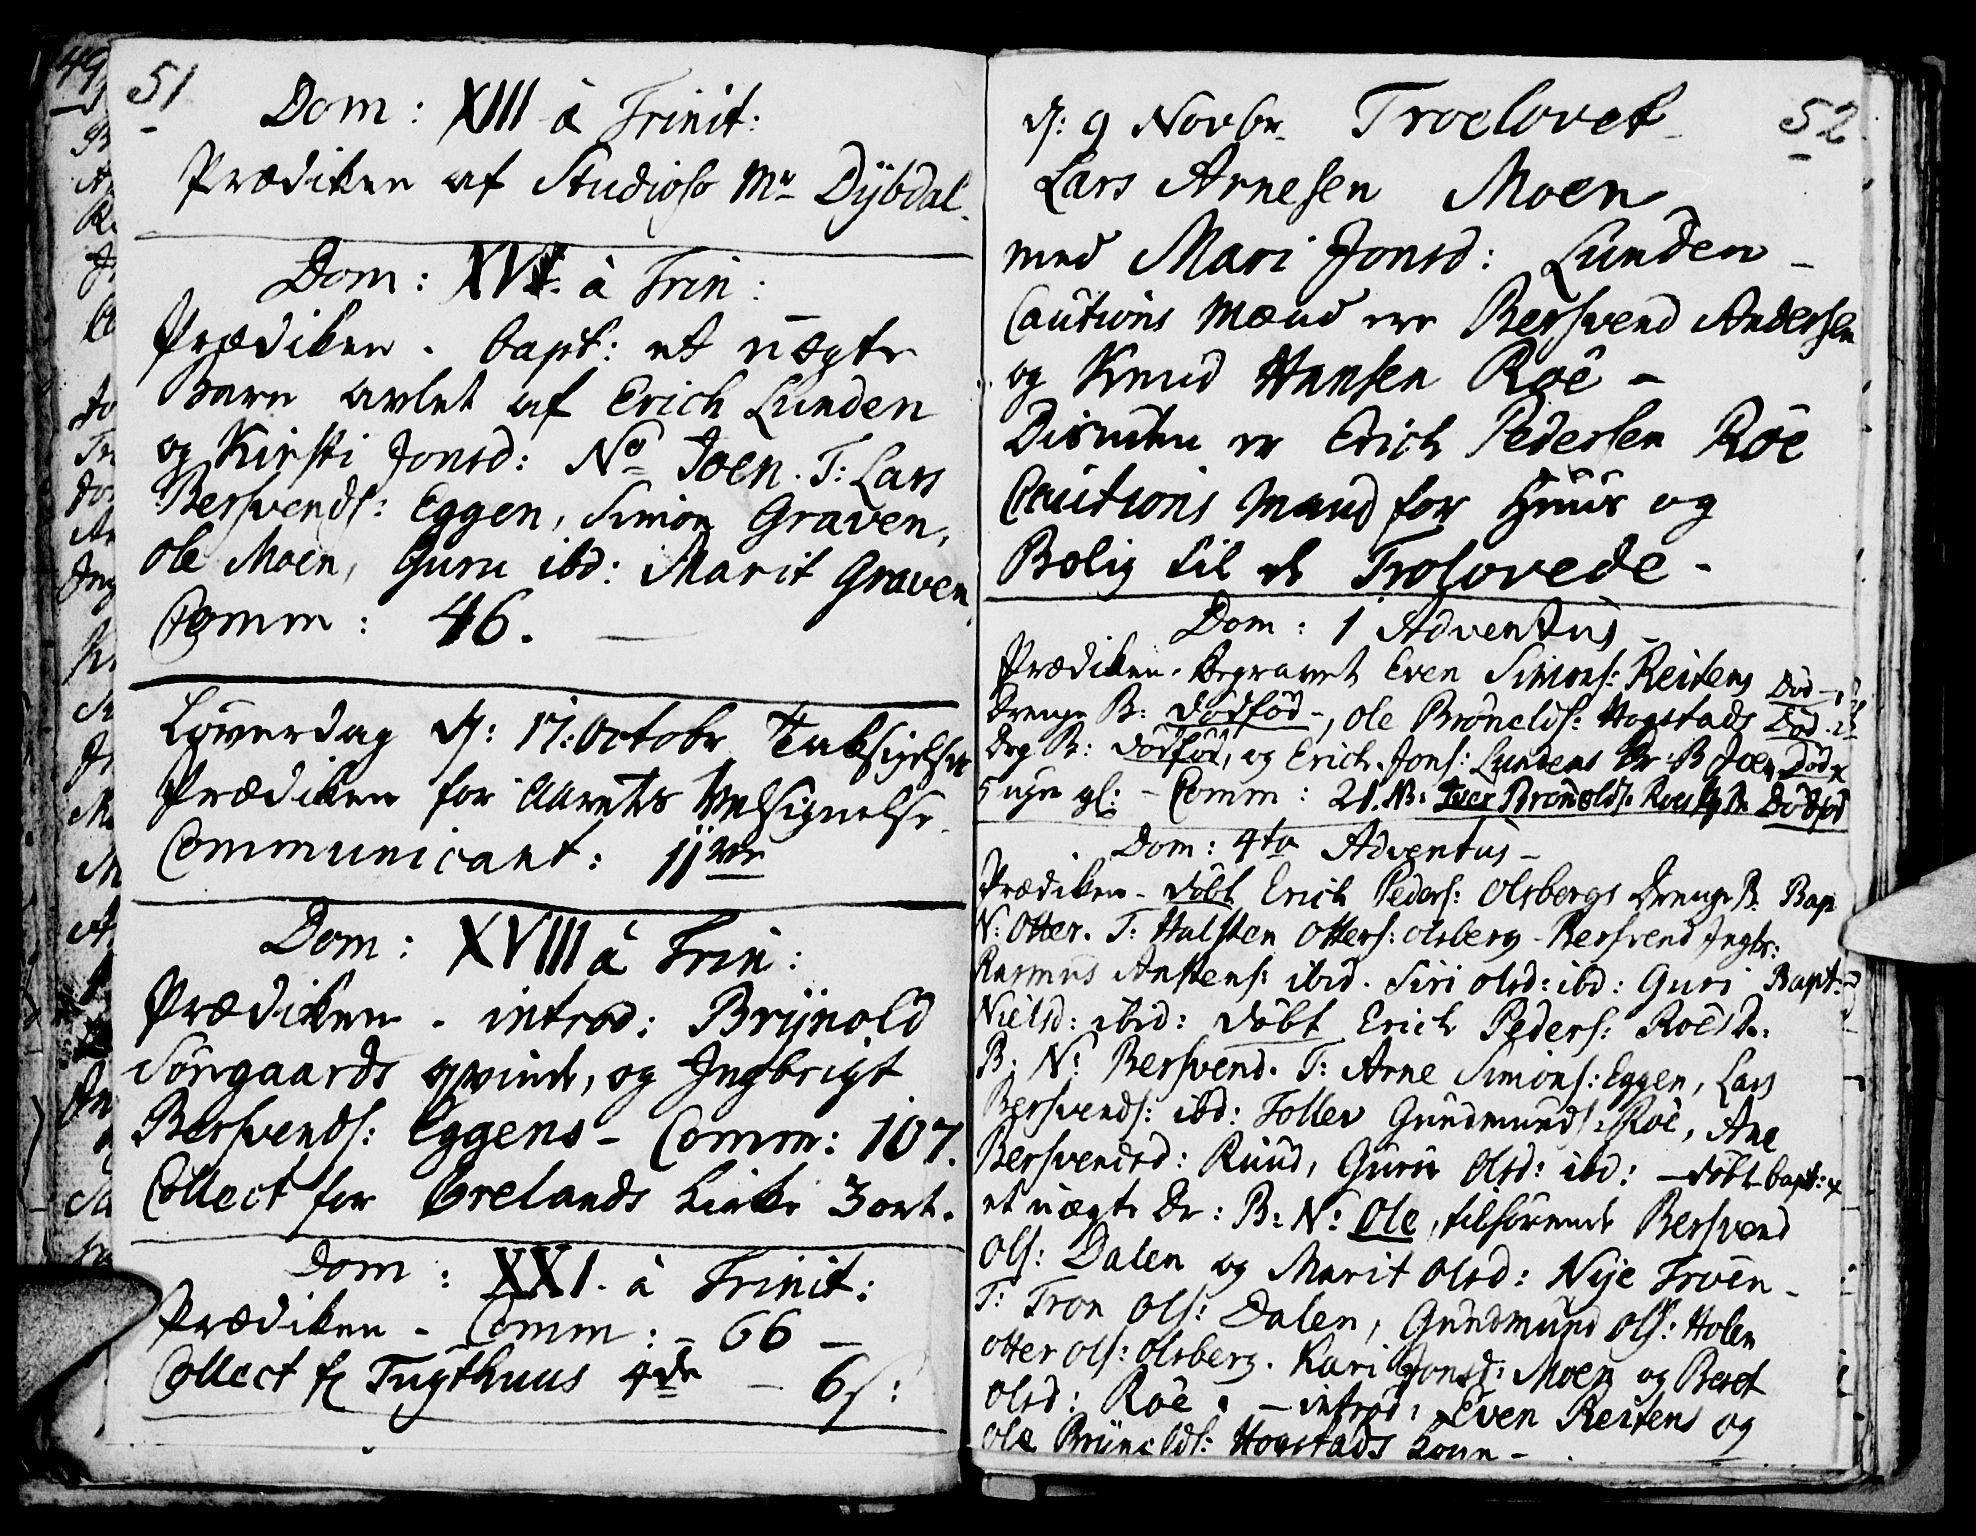 51
Dom: XIII à Trinit:
Prædiken af Studioso Mr Dÿbdal.
Dom: XV à Trin:
Prædiken. bapt: et uægte
Barn avlet af Erich Lunden
og Kirsti Jonsd: No Joen. T: Lars
Bersvends: Eggen, Simon Graven,
Ole Moen, Guru ibd: Marit Graven
Comm: 46.
Løverdag d: 17: Octobr Taksigelses
Prædiken for Aarets Velsignelse.
Communicant: 11ve
Dom: XVIII à Trin:
Prædiken. introd: Brÿnold
Søngaards qvinde, og Ingbrigt
Bersvends: Eggens - Comm: 107.
Collect for Ørelands Kirke 3 ort.
Dom: XXI. à Trinit:
Prædiken - Comm: - 66 -
Collect f Tugthuus 4de - 6 s:
52
d: 9 Novbr. Troelovet
Lars Arnesen Moen
med Mari Jonsd: Lunden -
Cautions Mænd ere Bersvend Andersen
og Knud Hansen Roë -
Disuden er Erich Pedersen Röe
Cautions Mand for Huus og
Bolig til de Trolovede -
Dom: 1 Adventus -
Prædiken. Begravet Even Simons: Reitens
Drenge B: dødfød -, Ole Brÿnelds: Hogstads
Drg B: dødfød, og Erich Jons: Lundens Dr: B Joen
5 uger gl: - Comm: 21. NB: Iver Brÿnolds: Roës B: Dødfød
Dom: 4ta Adventus -
Prædiken - døbt Erich Peders: Olsbergs Drenge B: Bap
N: Otter. T: Halsten Otters: Olsberg - Bersvend Ingbr:
Rasmus Anstens: ibid. Siri Olsd: ibd: Guri
Nielsd: ibid: døbt Erich Peders: Roës D:
B: N: Bersvend. T: Arne Simons: Eggen, Lars
Bersvends: ibd: Tollev Gundmunds: Roë, Ane
Bersvendsd: Ruud, Guru Olsd: ibd: - døbt bapt:
et uægte Dr: B: N: Ole, tilhørende Bersvend
Ols: Dalen og Marit Olsd: Nÿe Troën -
T: Tron Ols: Dalen, Gundmund Ols: Holen
Otter Ols: Olsberg. Kari Jonsd: Moen og Beret
Olsd: Roë. - introd: Even Reitens og
Ole Brÿnelds: Hogstads Kone -